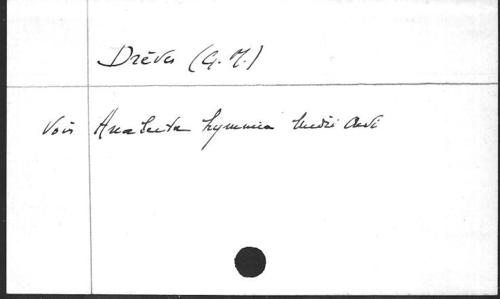 Drèves (G. M.)
Voir Analecta hymnica medii aevi